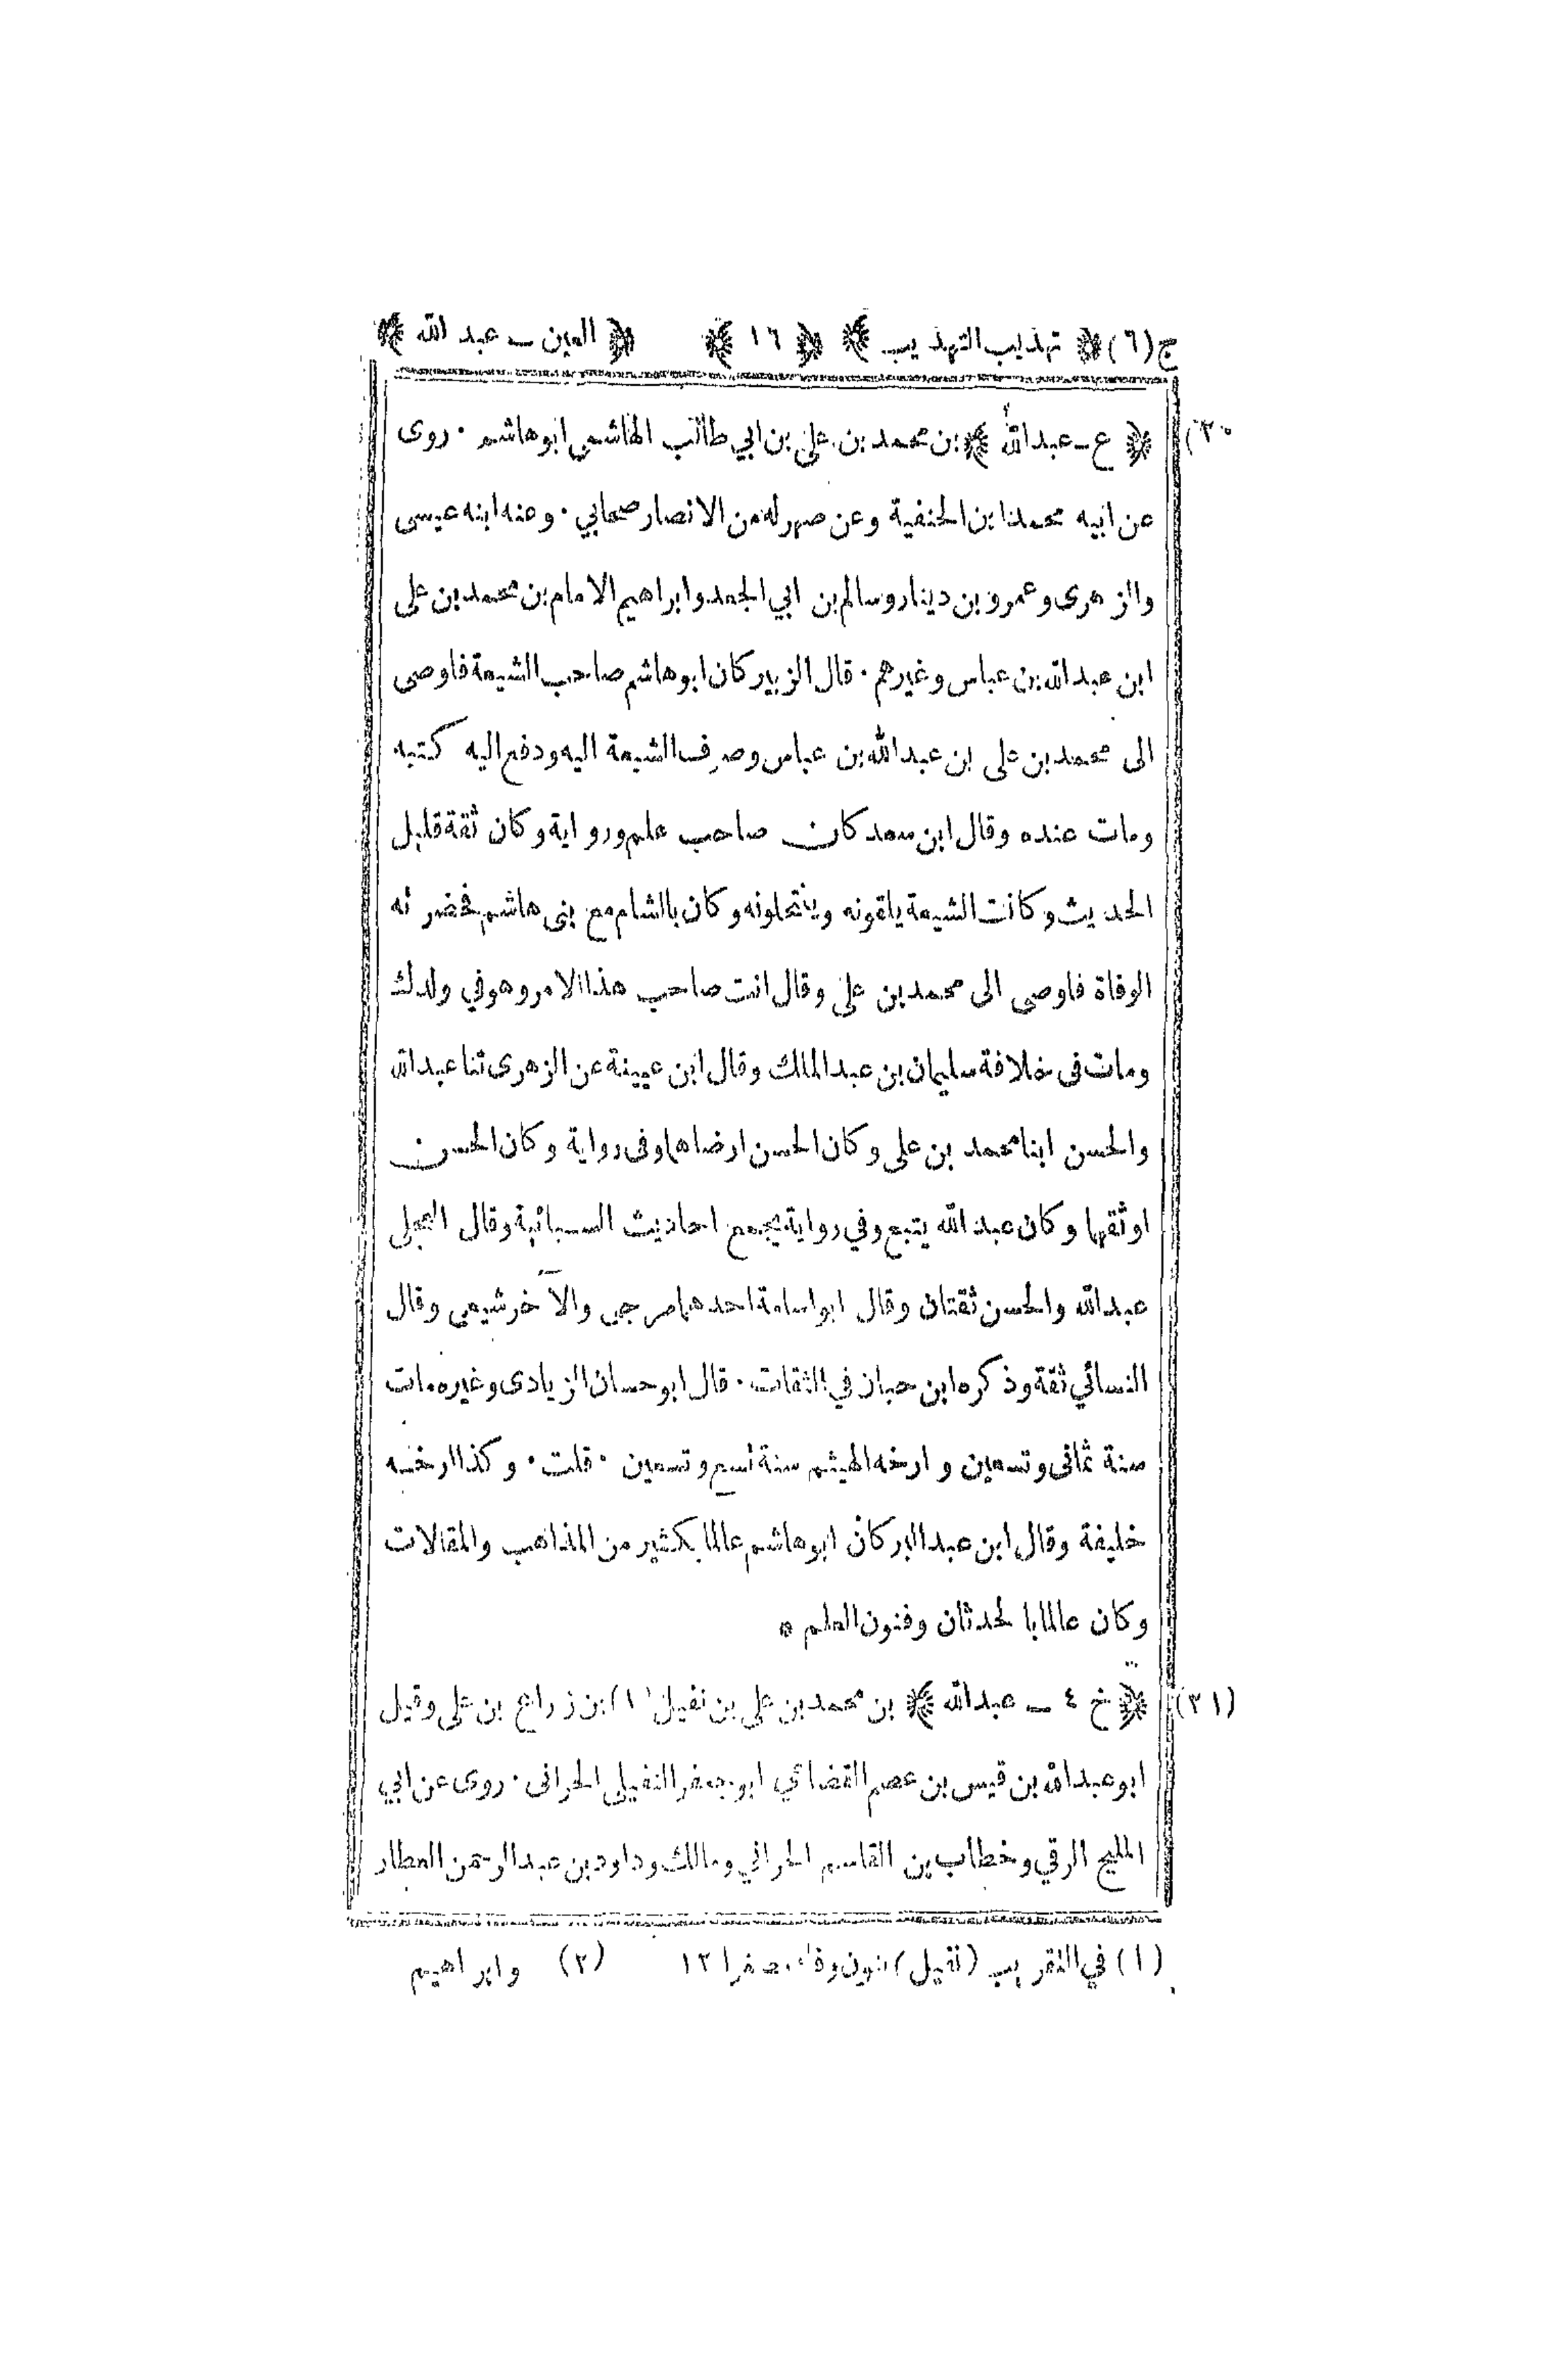 ج(٦) ﴿ تهذيب التهذيب ﴾ ﴿ ١٦ ﴾ ﴿ العين ـ عبد الله ﴾
(٢٠) ﴿ ع ـ عبد الله ﴾ بن محمد بن على بن ابي طالب الهاشمي ابو هاشم . روى
عن ابيه محمد ابن الحنفية وعن صهر له من الانصار صحابي . وعنه ابنه عيسى
والزهرى وعمرو بن دينار وسالم بن ابي الجعد وابراهيم الامام بن محمد بن على
ابن عبد الله بن عباس وغيرهم . قال الزبير كان ابو هاشم صاحب الشيعة فاوصى
الى محمد بن على بن عبد الله بن عباس وصرف الشيعة اليه ودفع اليه كتبه
ومات عنده وقال ابن سعد كان صاحب علم ورواية وكان ثقة قليل
الحديث وكانت الشيعة يلقونه وينتحلونه وكان بالشام مع بنى هاشم فحضرته
الوفاة فاوصى الى محمد بن على وقال انت صاحب هذا الامر وهو في ولدك
ومات فى خلافة سليمان بن عبد الملك وقال ابن عيينة عن الزهرى ثنا عبد الله
والحسن ابنا محمد بن على وكان الحسن ارضاهما وفى رواية وكان الحسن
اوثقهما وكان عبد الله يتبع وفي رواية يجمع احاديث السبائية وقال العجلى
عبد الله والحسن ثقتان وقال ابو اسامة احدهما مرجى والآخر شيعى وقال
النسائي ثقة وذكره ابن حبان في الثقات . قال ابو حسان الزيادى وغيره مات
سنة ثمانى وتسعين وارخه الهيثم سنة تسع وتسعين . قلت . وكذا ارخه
خليفة وقال ابن عبد البر كان ابو هاشم عالما بكثير من المذاهب والمقالات
وكان عالما بالحدثان وفنون العلم *
(٢١) ﴿ خ ٤ ـ عبد الله ﴾ بن محمد بن على بن نفيل (١) بن زراع بن على وقيل
ابو عبد الله بن قيس بن عصم القضاعي ابو جعفر النفيلى الحرانى . روى عن ابي
المليح الرقي وخطاب بن القاسم الحراني ومالك وداود بن عبد الرحمن العطار
(١) في التقريب (نفيل) بنون وفاء مصغرا ١٢ (٢) وابراهيم